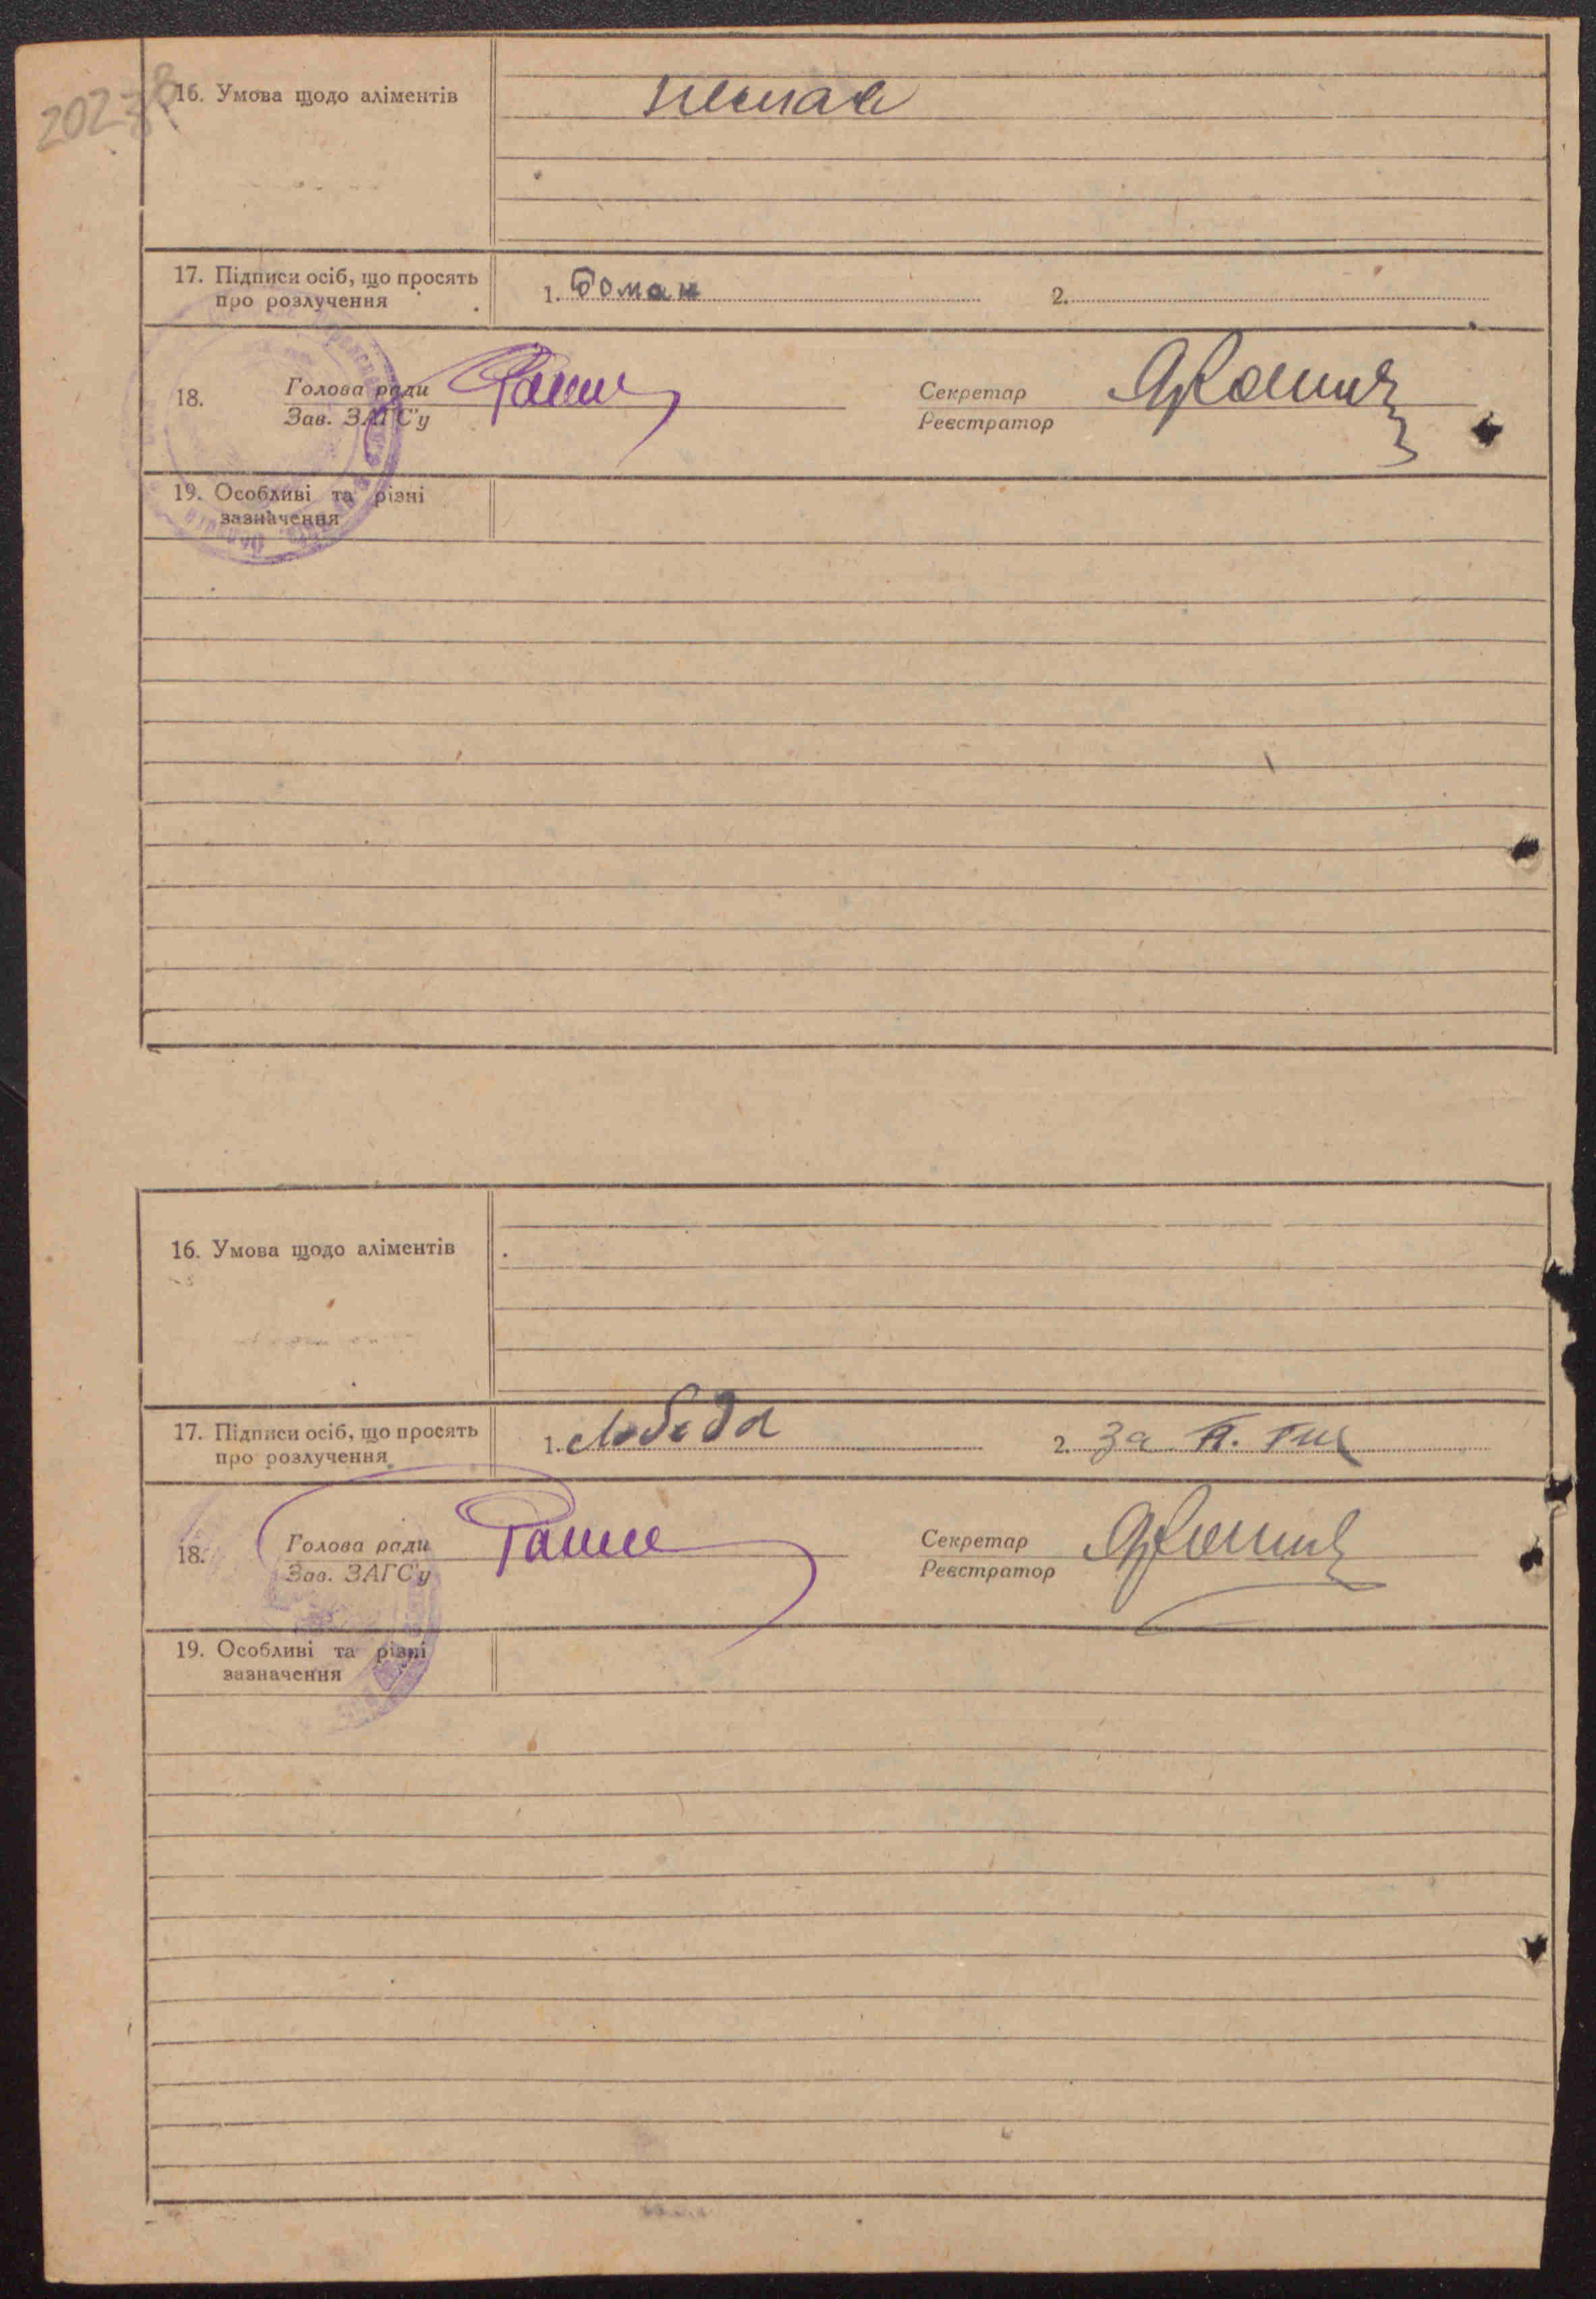 16. Умова щодо аліментів
немає
17. Підписи осіб, що просять
про розлучення
1. Роман
2.
18.
Голова ради
Зав. ЗАГС'у
Секретар
Реєстратор
19. Особливі та різні
зазначення
16. Умова щодо аліментів
17. Підписи осіб, що просять
про розлучення
1. Лобода
2. За
18.
Голова ради
Зав. ЗАГС'у
Секретар
Реєстратор
19. Особливі та різні
зазначення